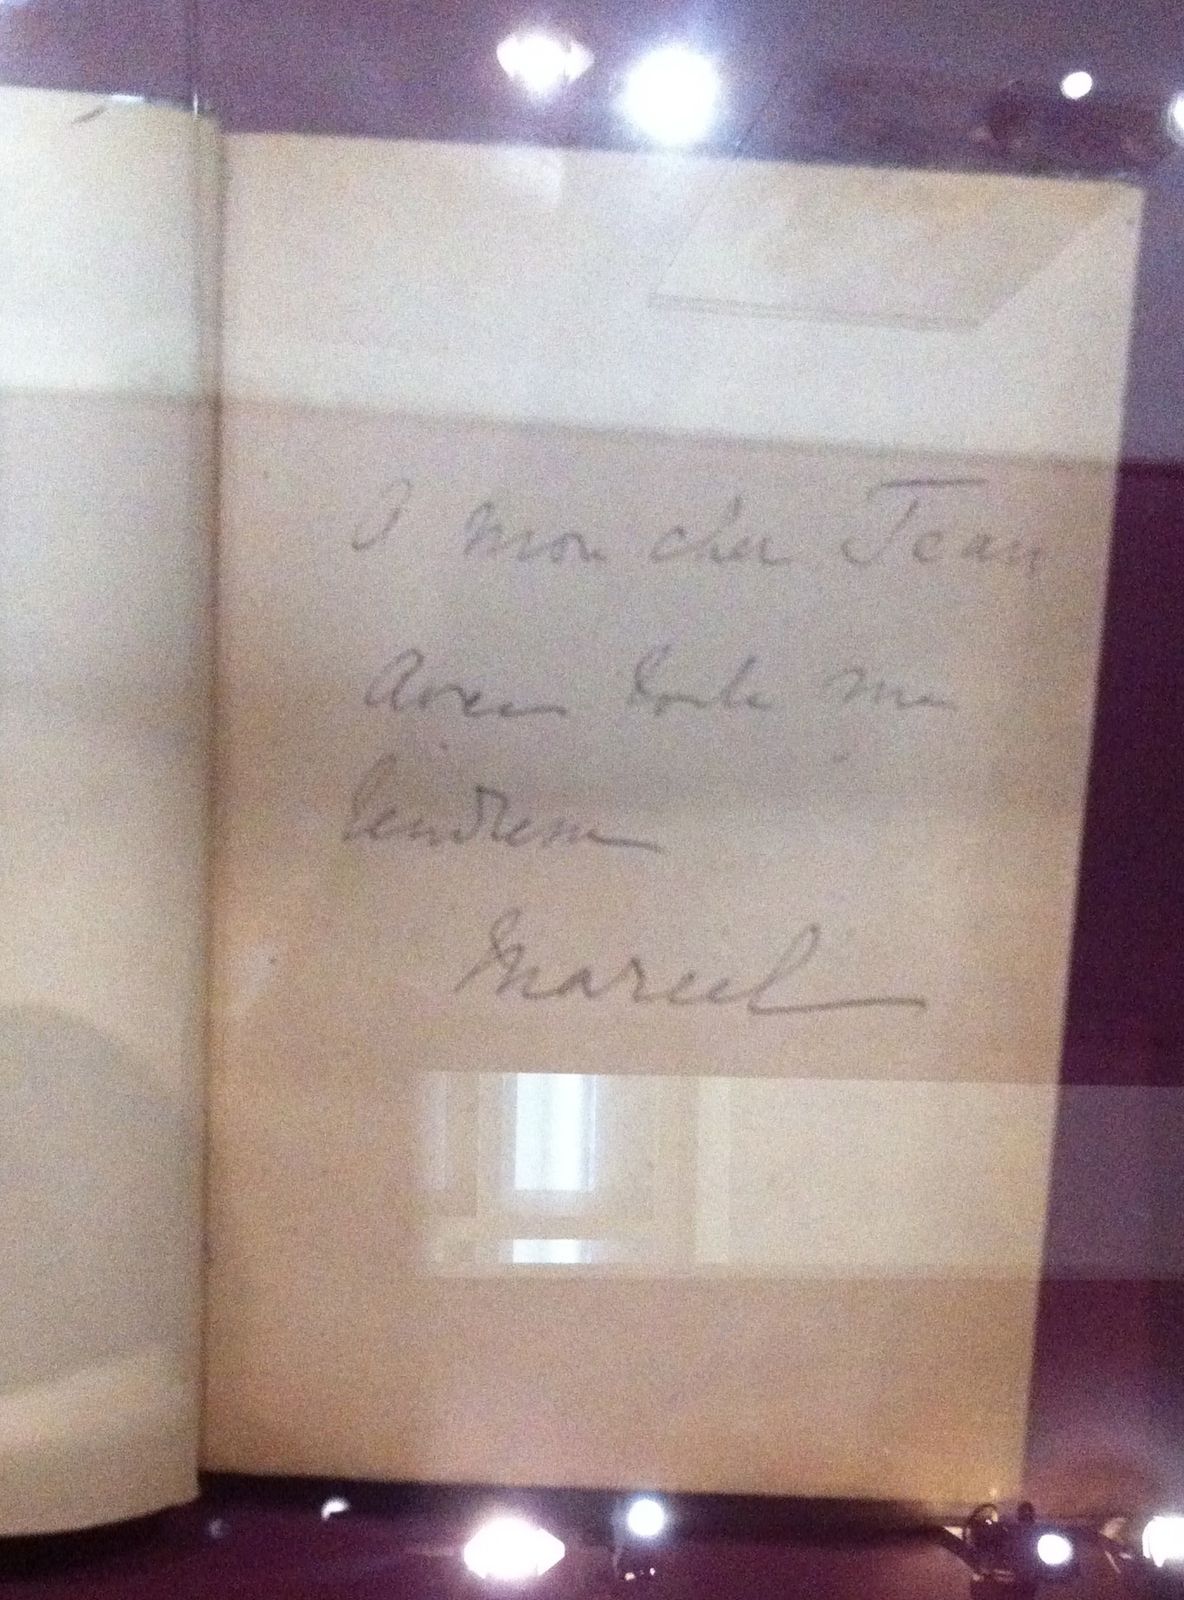 A mon cher Jean
Avec toute ma
tendresse
Marcel